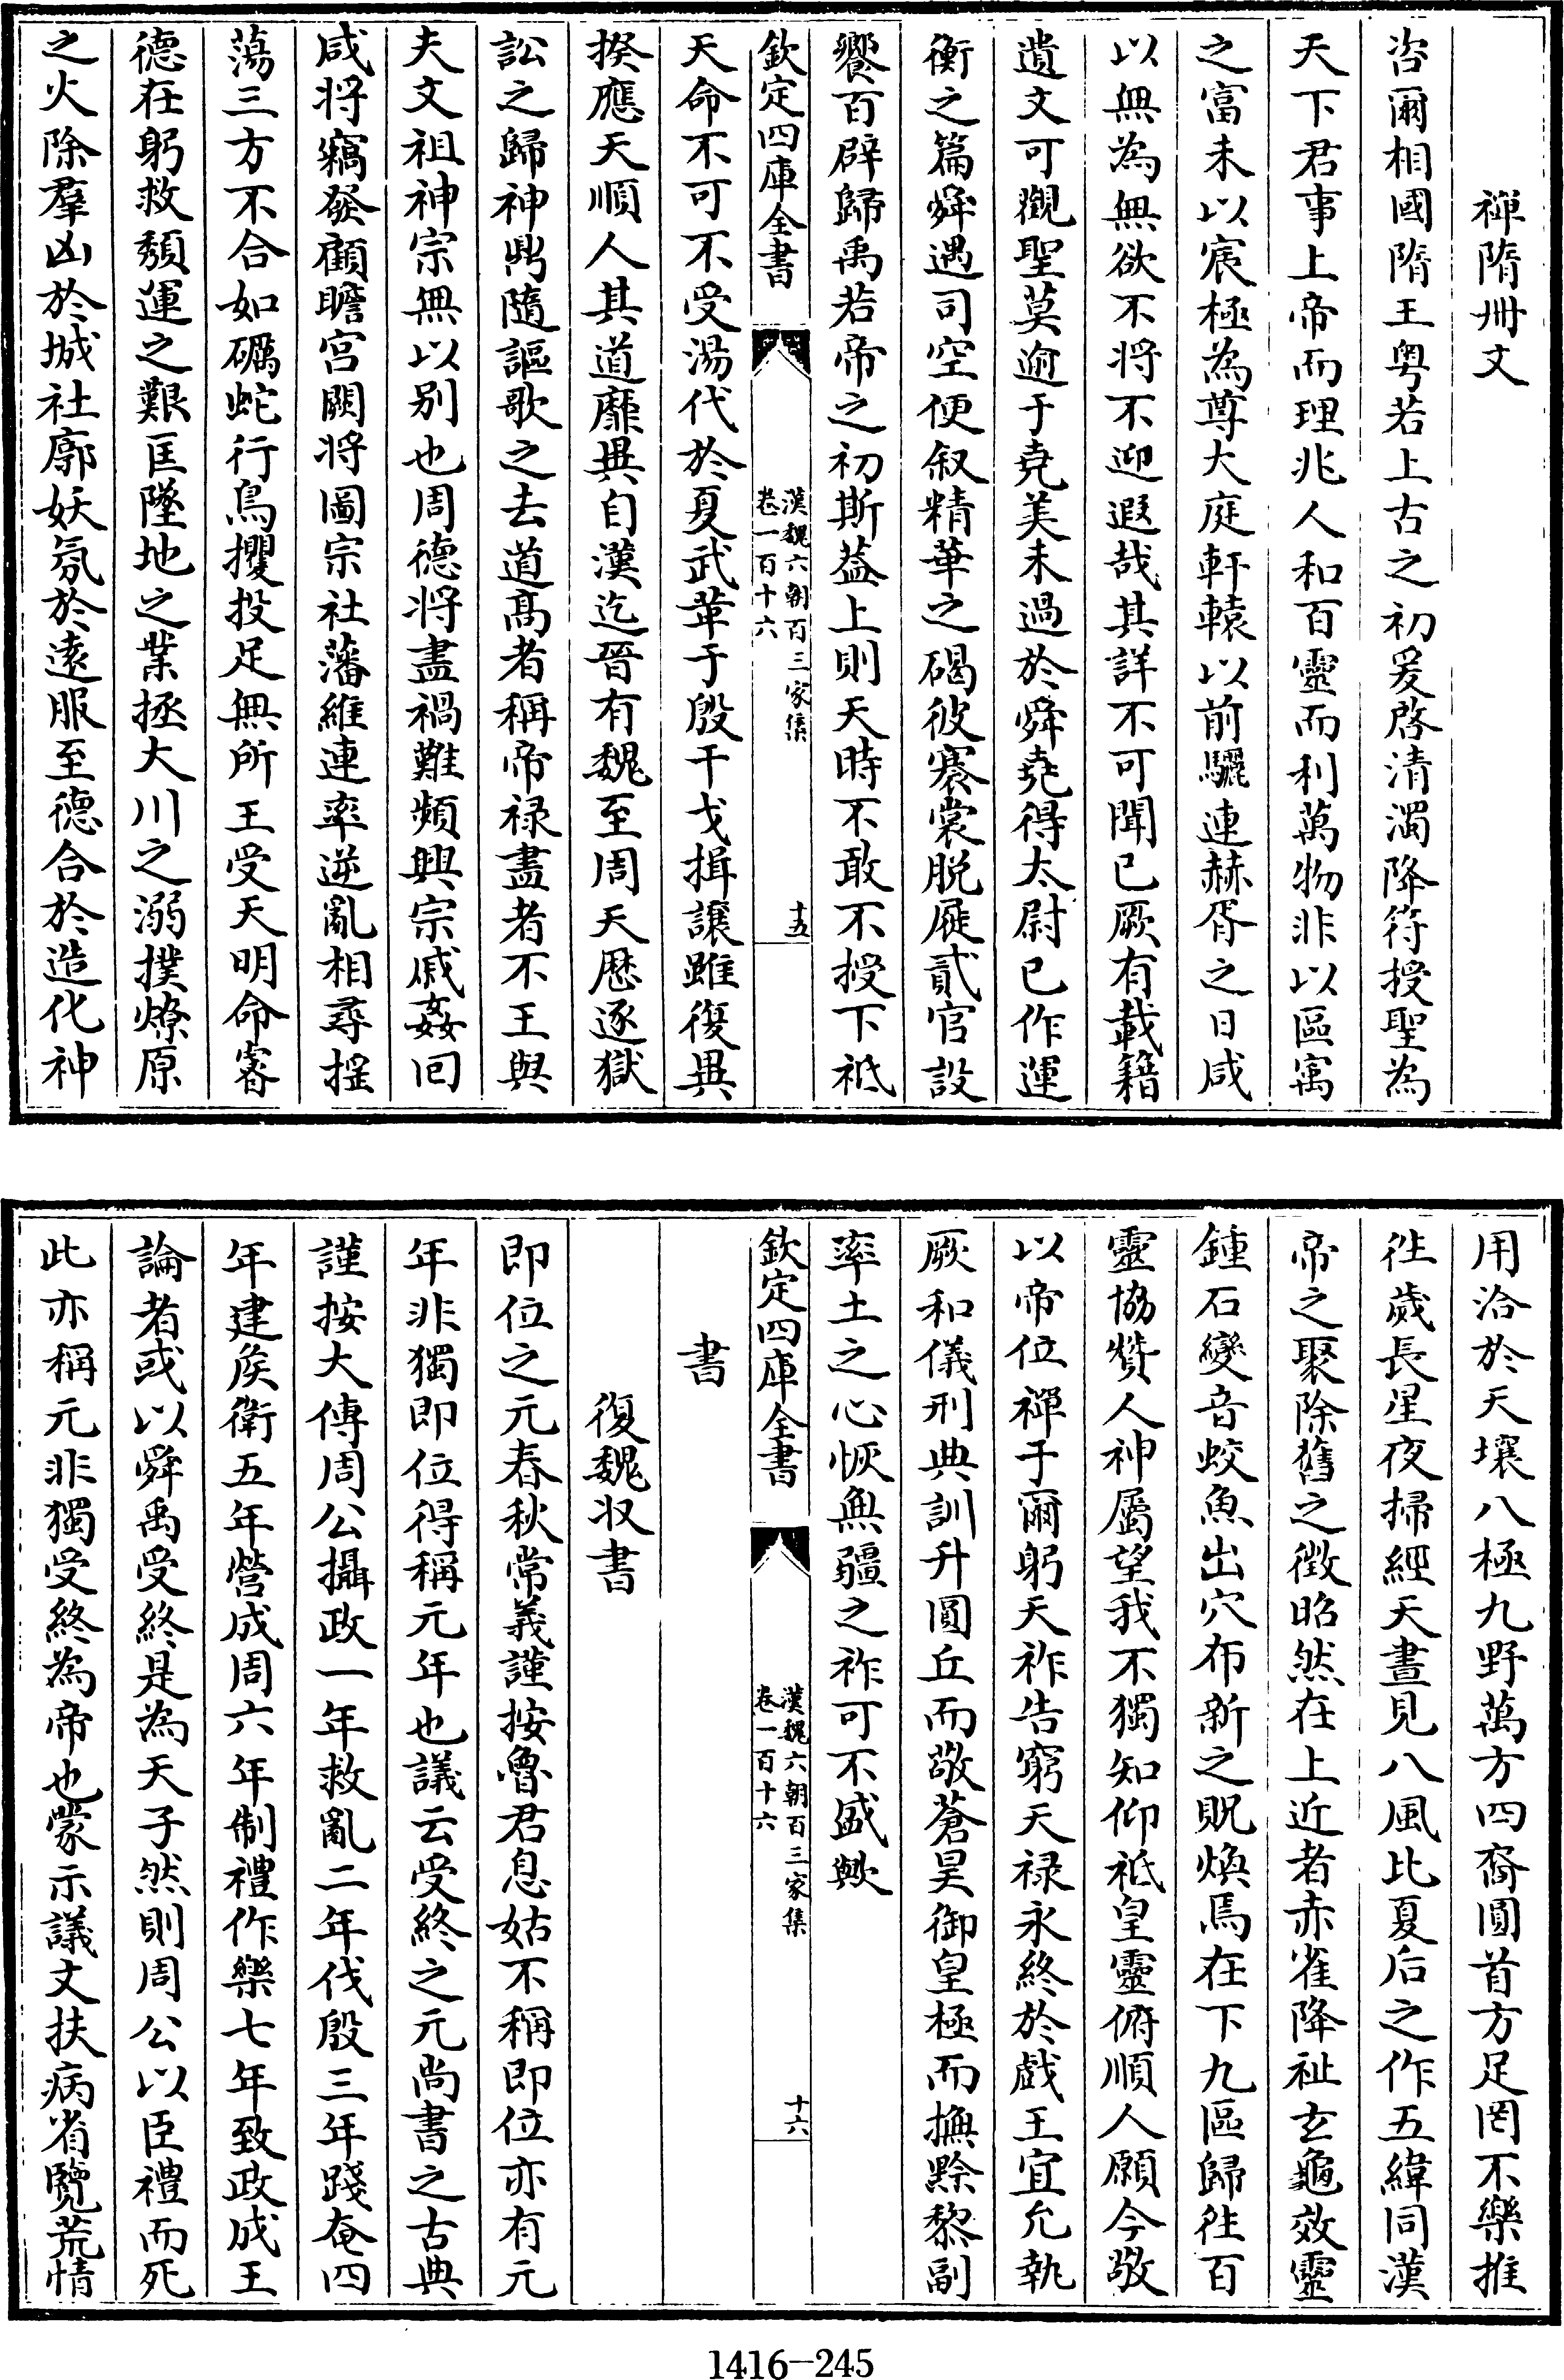 禪隋冊文
咨爾相國隋王粤若上古之初爰啓清濁降符授聖為
天下君事上帝而理兆人和百靈而利萬物非以區寓
之富未以宸極為尊大庭軒轅以前驪連赫胥之日咸
以無為無欲不将不迎遐哉其詳不可聞已厥有載籍
遺文可觀聖莫逾于堯美未過於舜堯得太尉已作運
衡之篇舜遇司空便叙精華之碣彼褰裳脱屣貳官設
饗百辟歸禹若帝之初斯葢上則天時不敢不授下祗
欽定四庫全書
漢魏六朝百三家集
卷一百十六
十五
天命不可不受湯代於夏武革于殷干戈揖讓雖復異
揆應天順人其道靡異自漢迄晉有魏至周天厯逐獄
訟之歸神鼎隨謳歌之去道髙者稱帝禄盡者不王與
夫文祖神宗無以别也周德将盡禍難頻興宗戚姦回
咸将竊發顧瞻宫闕将圖宗社藩維連率逆亂相尋揺
蕩三方不合如礪蛇行鳥攫投足無所王受天明命睿
德在躬救頽運之艱匡墜地之業拯大川之溺撲燎原
之火除羣凶於城社廓妖氛於逺服至德合於造化神
用洽於天壤八極九野萬方四裔圓首方足罔不樂推
徃歲長星夜掃經天晝見八風比夏后之作五緯同漢
帝之聚除舊之徴昭然在上近者赤雀降祉玄龜效靈
鍾石變音蛟魚出穴布新之貺煥焉在下九區歸徃百
靈協贊人神屬望我不獨知仰祗皇靈俯順人願今敬
以帝位禪于爾躬天祚告窮天禄永終於戲王宜允執
厥和儀刑典訓升圓丘而敬蒼昊御皇極而撫黔黎副
率土之心恢無疆之祚可不盛歟
欽定四庫全書
漢魏六朝百三家集
卷一百十六
十六
書
復魏收書
即位之元春秋常義謹按魯君息姑不稱即位亦有元
年非獨即位得稱元年也議云受終之元尚書之古典
謹按大傳周公攝政一年救亂二年伐殷三年踐奄四
年建矦衛五年營成周六年制禮作樂七年致政成王
論者或以舜禹受終是為天子然則周公以臣禮而死
此亦稱元非獨受終為帝也蒙示議文扶病省覽荒情
1416-245